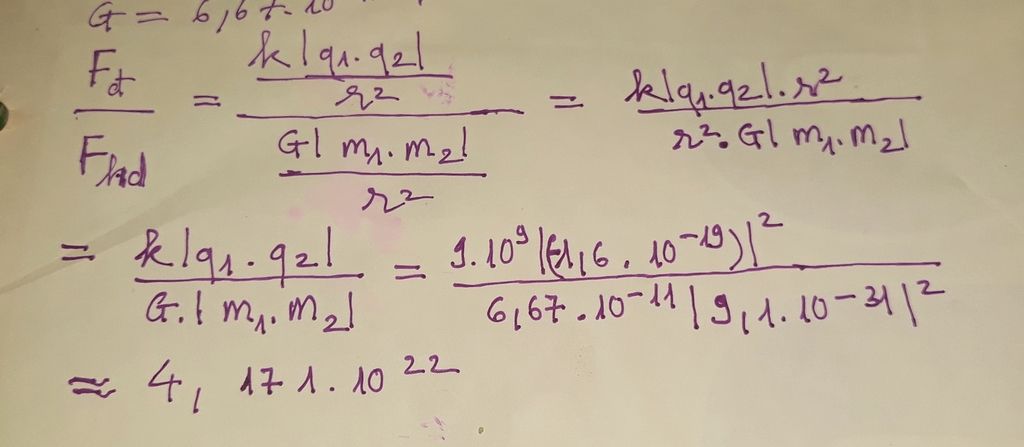 G = 6,67.10
F_đ / F_hd = (k|q₁.q₂| / r²) / (G|m₁.m₂| / r²) = k|q₁.q₂|.r² / r².G|m₁.m₂|
= k|q₁.q₂| / G.|m₁.m₂| = 9.10⁹|(-1,6.10⁻¹⁹)|² / 6,67.10⁻¹¹|9,1.10⁻³¹|²
≈ 4,171.10²²